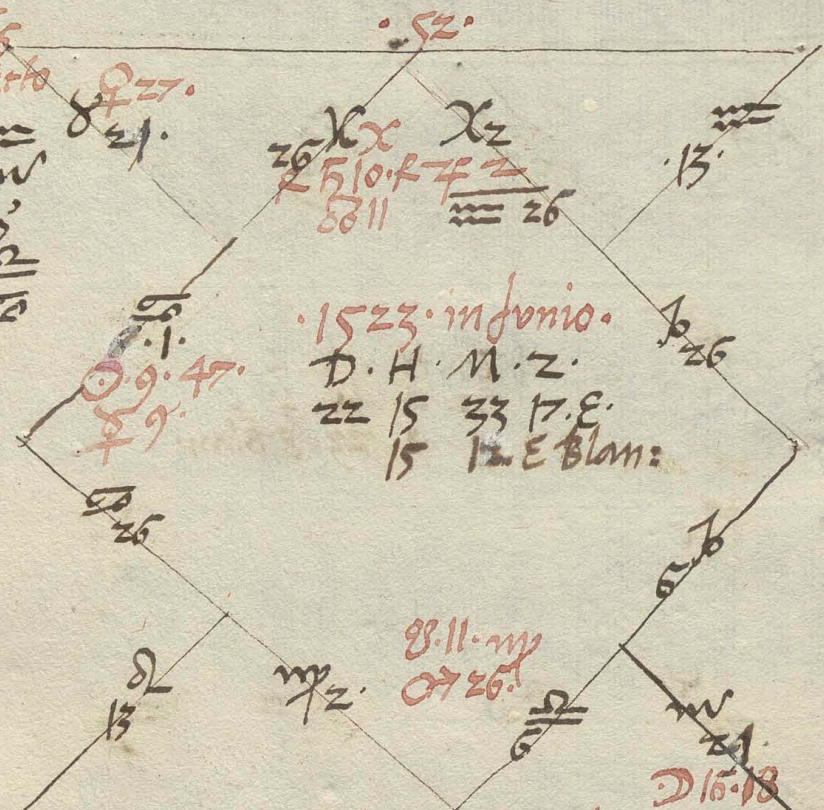 · 52 ·
♀ 27 ·
♉ 21 ·
26 ♓ ♓
♓ 2
♒
· 13 ·
℞ ♄ 10 · ℞ ♃ 2
11
♒ 26
♋
· 1 ·
☉ · 9 · 47 ·
☿ 9 ·
· 1523 · in Junio ·
D · H · M · 2 ·
22 15 33 17 · E ·
15 12 E Blan:
♑ 26
♋ 26
♑ 6
♌ 13
♍ 2 ·
☋ · 11 · ♍
♂ 26 ·
♎ 6
♏ 21 ·
☽ 16 · 18